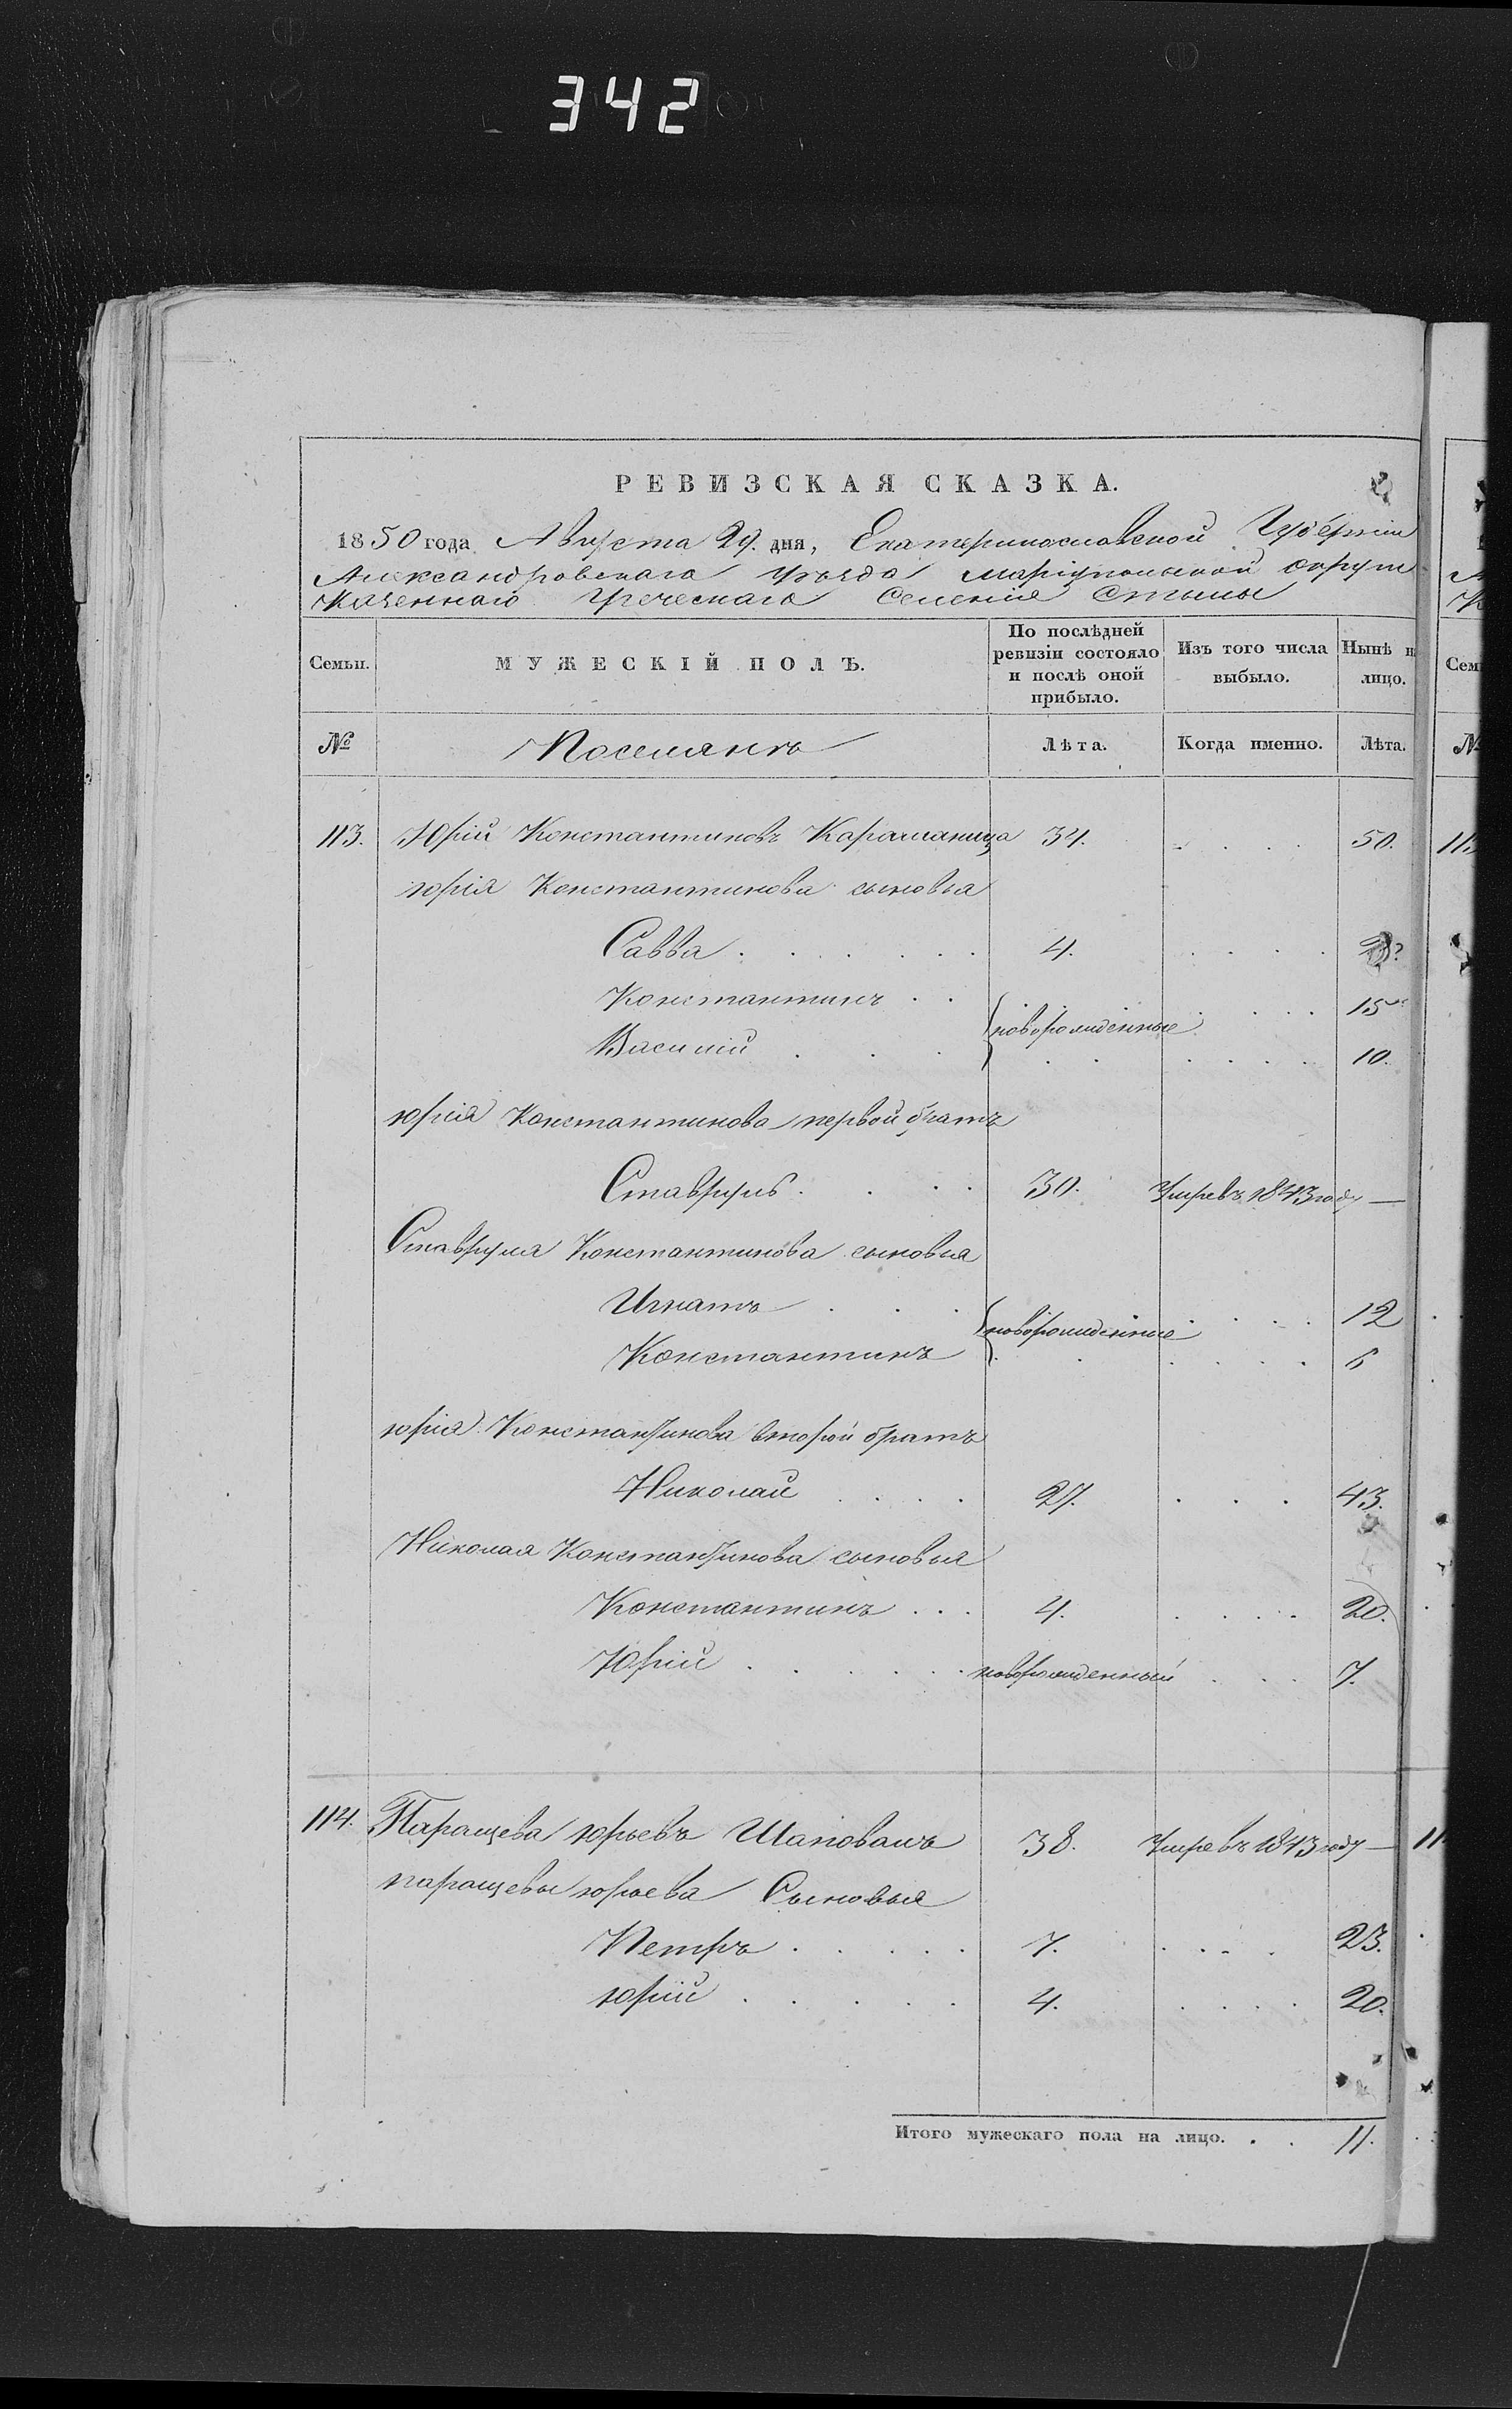 342
РЕВИЗСКАЯ СКАЗКА.
1850 года Августа 29. дня, Екатеринославской Губерніи
Александровскаго уѣзда Маріупольской округи
Казеннаго Греческаго Селенія Стылы
Семьи. МУЖЕСКІЙ ПОЛЪ. По послѣдней ревизіи состояло и послѣ оной прибыло. Изъ того числа выбыло. Нынѣ на лицо.
№ Поселянъ Лѣта. Когда именно. Лѣта.
113. Юрій Константиновъ Караманица 34. . . . . 50.
юрія Константинова сыновья
Савва . . . . . . 4. . . . .
Константинъ . . . . . . 15
новорожденные
Василій . . . . . . . . . 10.
юрія Константинова первой братъ
Ставруль . . . . 30. Умревъ 1843 году —
Ставруля Константинова сыновья
Игнатъ . . . . . . . 12
новорожденные
Константинъ . . . . . . 6
юрія Константинова второй братъ
Николай . . . . 27. . . . 43.
Николая Константинова сыновья
Константинъ . . . 4. . . . . 20.
Юрій . . . . . новорожденный . . . 7.
114. Паращева юрьевъ Шаповалъ 38. Умревъ 1843 году —
паращевы юрьева Сыновья
Петръ . . . . . 7. . . . . 23.
юрій . . . . . 4. . . . . 20.
Итого мужескаго пола на лицо. . . 11.